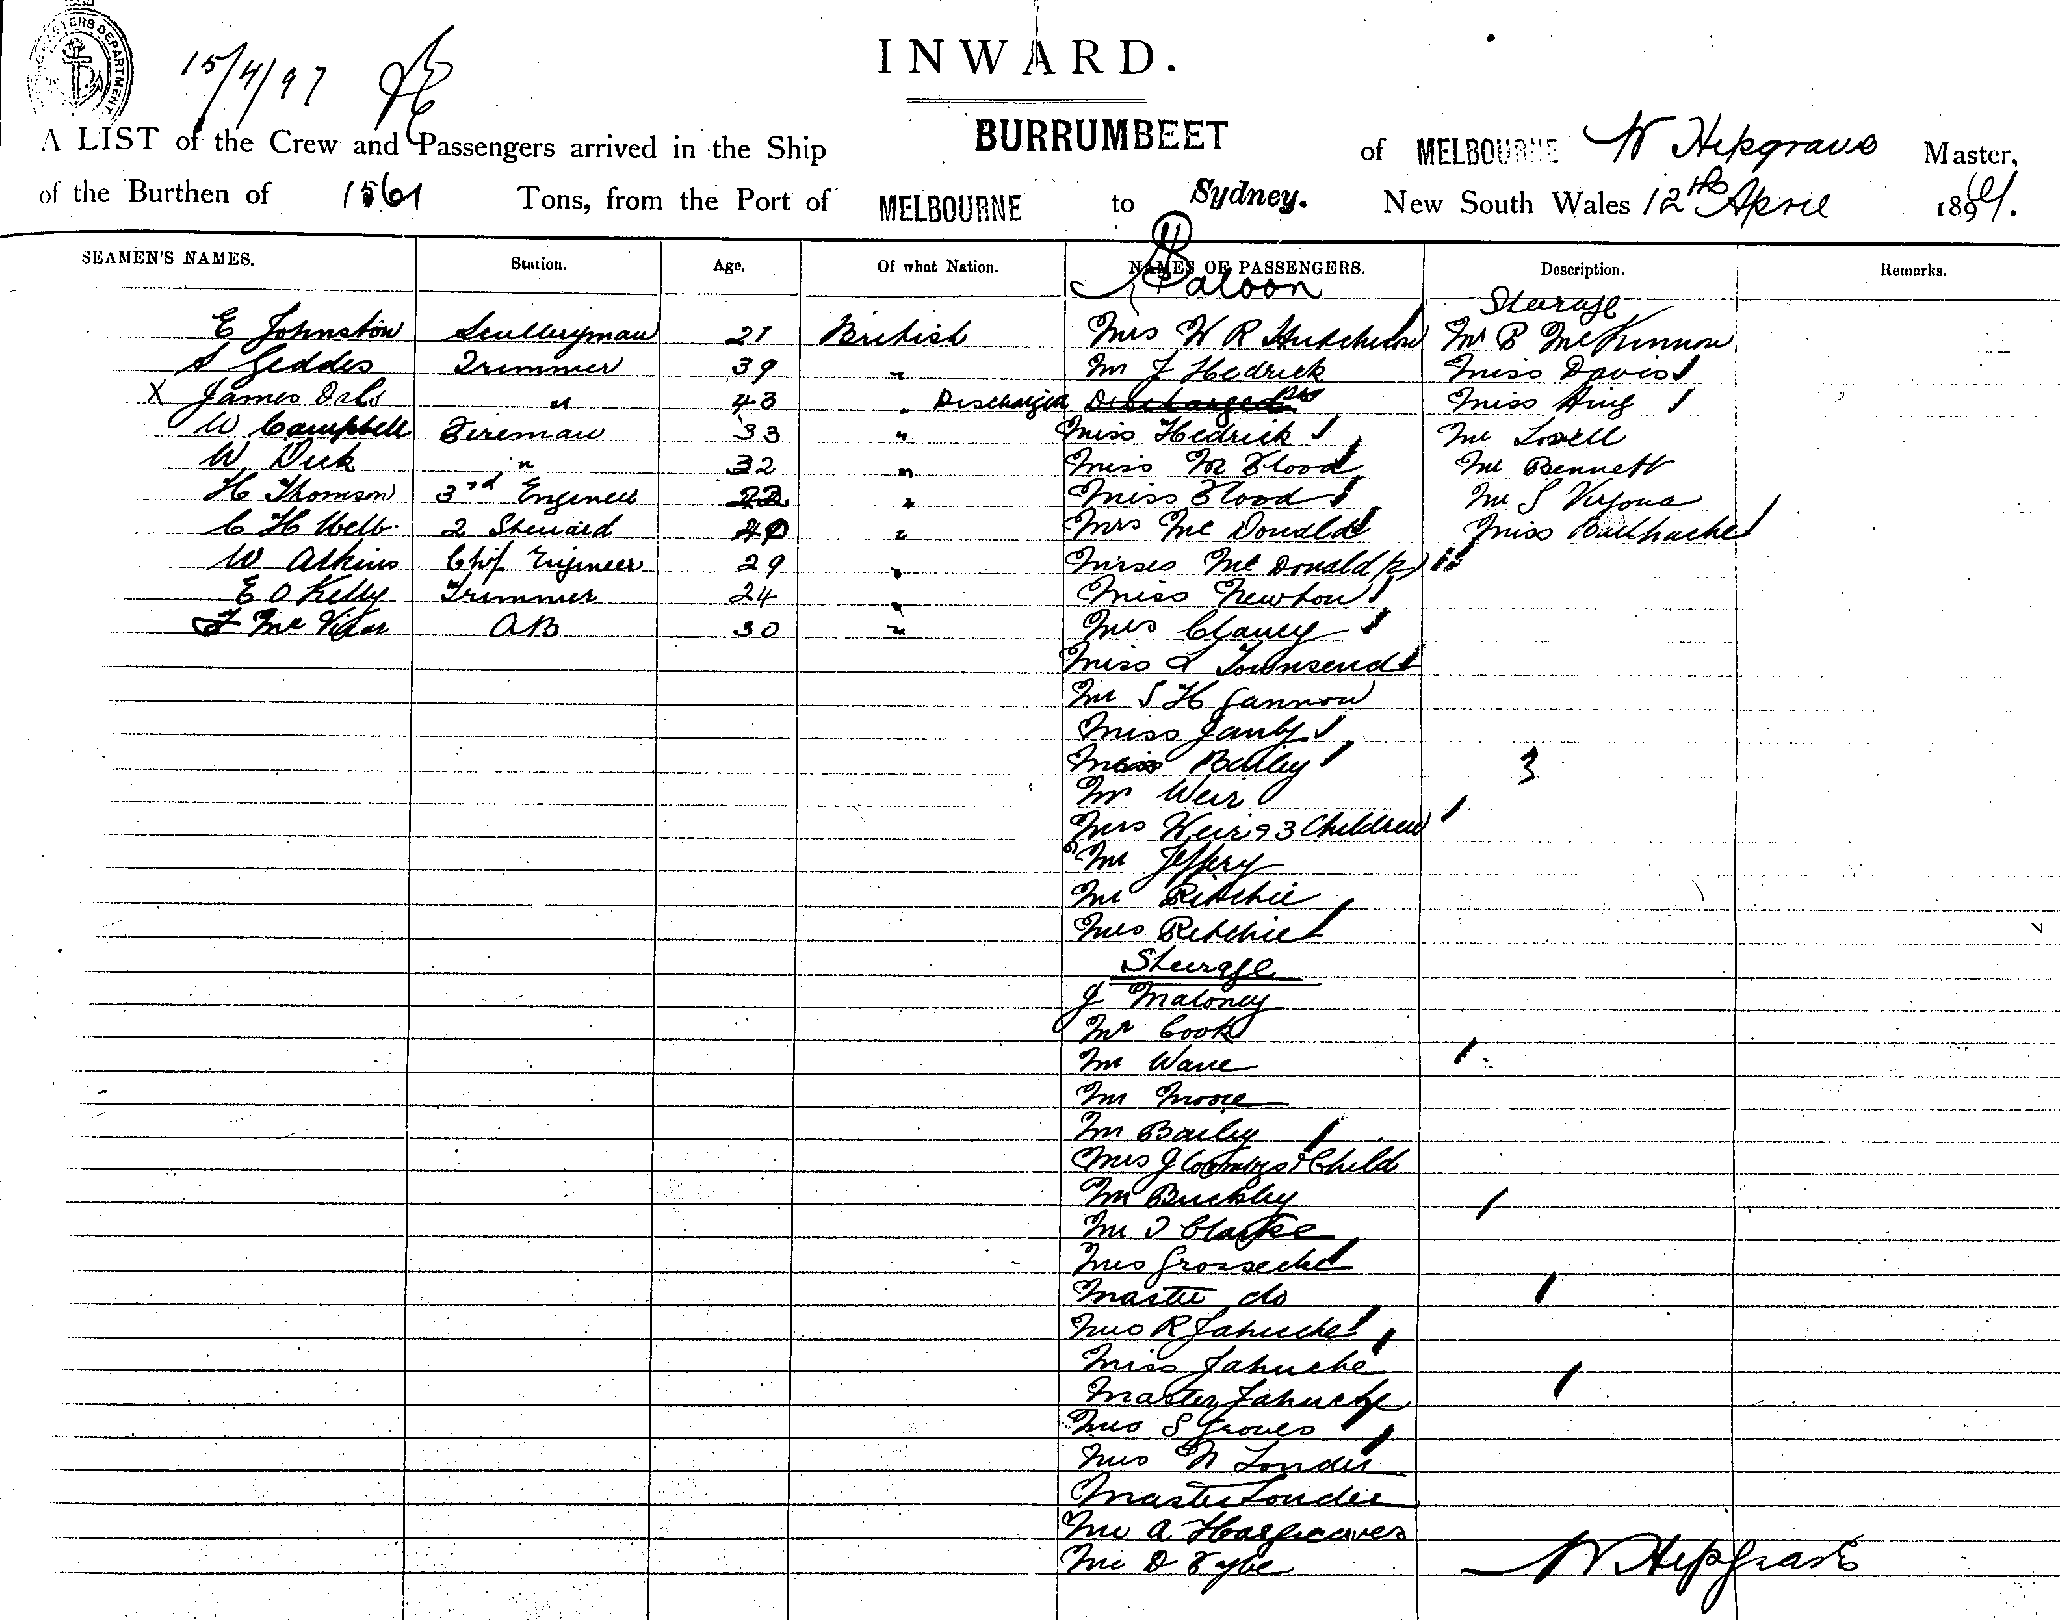 15/4/97
INWARD.
A LIST of the Crew and Passengers arrived in the Ship BURRUMBEET of MELBOURNE W Hipgrave Master,
of the Burthen of 1561 Tons, from the Port of MELBOURNE to Sydney. New South Wales 12th April 1897.
SEAMEN'S NAMES. Station. Age. Of what Nation. NAMES OF PASSENGERS. Description. Remarks.
Saloon Steerage
E Johnston Sculleryman 21 British Mrs W R Hutcheson Mr P McKinnon
A Geddes Trimmer 39 " Mr J Hedrick Miss Davis
X James " 43 " Discharged Discharged Miss King
W Campbell Fireman 33 " Miss Hedrick Mr Lovell
W Dick " 32 " Miss M Flood Mr Bennett
H Thomson 3rd Engineer 22 " Miss Flood Mr S
C H Webb 2 Steward 40 " Mrs McDonald Miss Bailhache
W Atkins Chif Engineer 29 " Misses McDonald (2)
E O Kelly Trimmer 24 " Miss Newton
F McVicar AB 30 " Mrs Clancy
Miss L Townsend
Mr S H Gannon
Miss
Miss Bailey 3
Mr Weir
Mrs Weir & 3 Children
Mr Jeffery
Mr Ritchie
Mrs Ritchie
Steerage
J Maloney
Mr Cook
Mr Wane
Mr Moore
Mr Bailey
Mrs J Coombes & Child
Mr Buckley
Mr T Clarke
Mrs
Master do
Mrs R
Miss
Master
Mrs S Groves
Mrs N Londer
Master Londer
Mr A Hargreaves
Mr D Fyfe
W Hipgrave